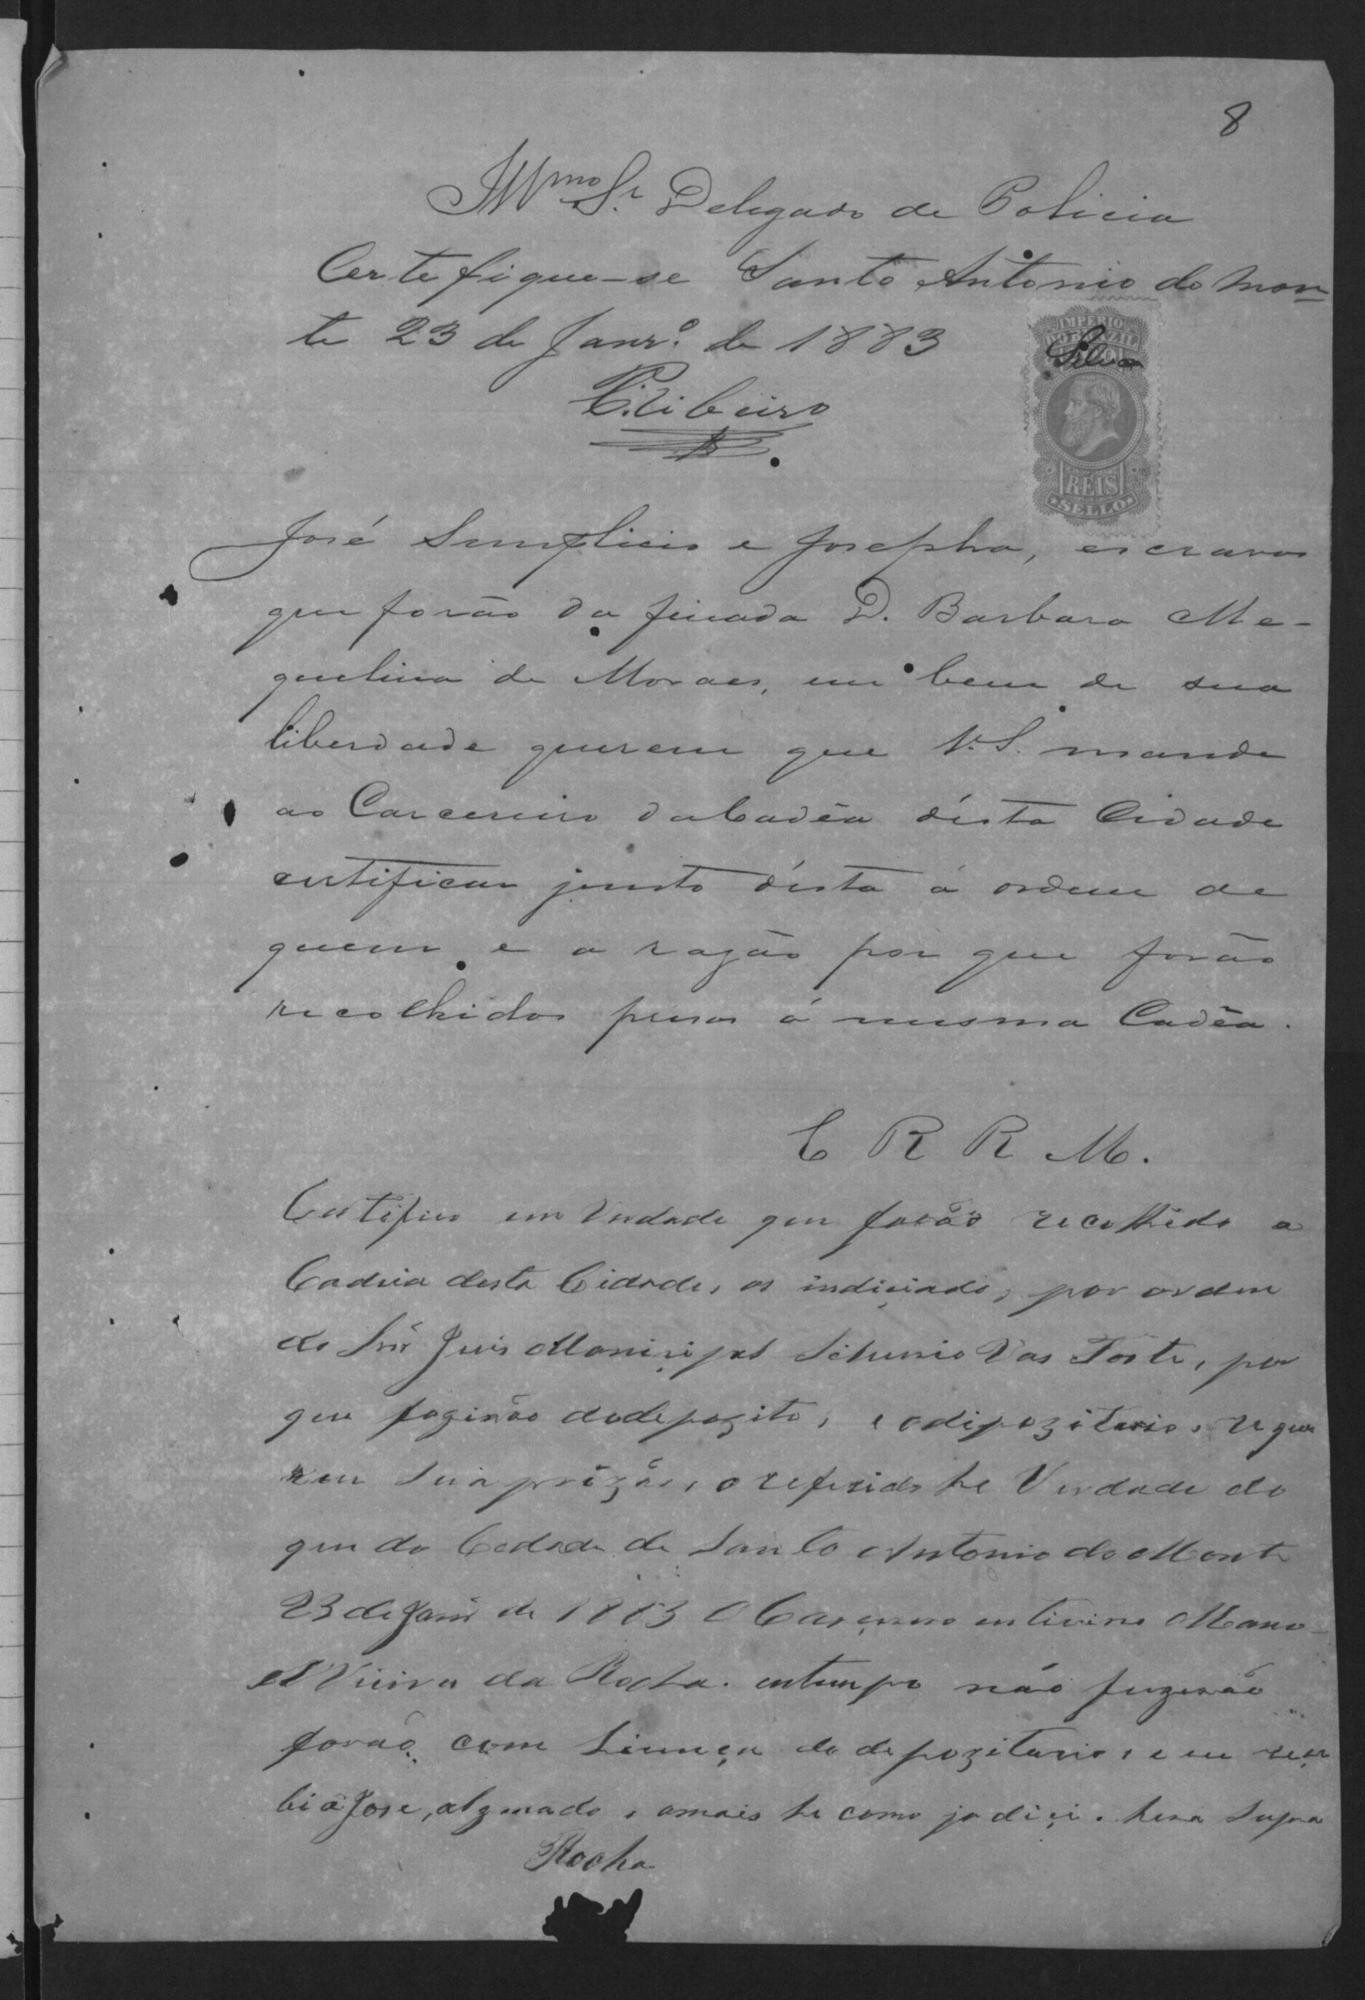 8
Illmo Sr. Delegado de Policia
Certefique-se Santo Antonio do Mon
te 23 de Janr.o de 1883
Ribeiro
IMPERIO
DO BRAZIL
Silva
REIS
SELLO
José Simplicio e Josepha, escravos
que forão da finada D. Barbara Me-
quelina de Moraes, em bem de sua
liberdade querem que V.S. mande
ao Carcereiro da Cadêa désta Cidade
certificar junto désta á ordem de
quem e a razão por que forão
recolhidos presos á mesma Cadêa.
E R R M.
Certifico em Verdade que forão recolhido a
Cadeia desta Cidade, os indiciado, por ordem
do Snr Juis Monicipal Vas Toste, por
que fogirão do depozito, e o dipozitario, reque
reu sua prizão, o referido he Verdade do
que dou Cidade de Santo Antonio do Monte
23 de Janr de 1883 O Carcereiro entirino Mano
el Vieira da Rocha. em tempo não fugirão
forão com Licença do depozitario, e eu rece
bi a José, algemado, e o mais he como ja dici. hera supra
Rocha